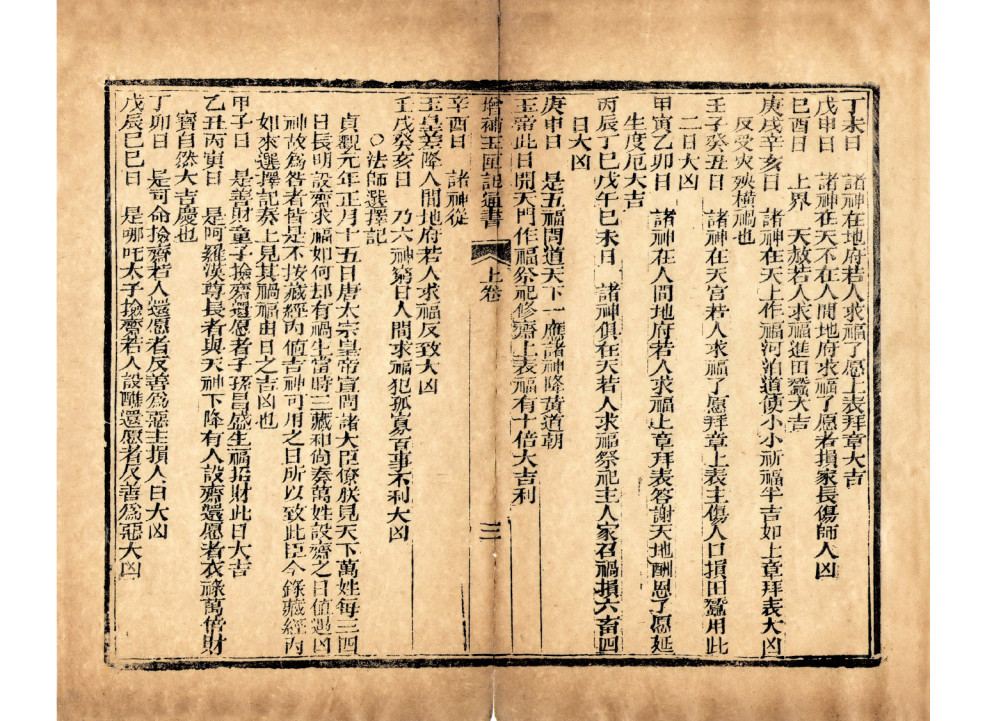 丁未日　諸神在地府若人求福了愿上表拜章大吉
戊申日　諸神在天不在人間地府求福了愿者損家長傷師人凶
巳酉日　上界　天赦若人求福進田蠶大吉
庚戌辛亥日　諸神在天上作福河泊道使小小祈福半吉如上章拜表大凶
反受灾殃橫禍也
壬子癸丑日　諸神在天宮若人求福了愿拜章上表主傷人口損田蠶用此
二日大凶
甲寅乙卯日　諸神在人間地府若人求福上章拜表答謝天地酬恩了愿延
生度厄大吉
丙辰丁巳戊午巳未日　諸神俱在天若人求福祭祀主人家召禍損六畜四
日大凶
庚申日　是五福問道天下一應諸神降黃道朝
玉帝此日開天門作福祭祀修齋上表福有十倍大吉利
增補玉匣記通書　上卷　三
辛酉日　諸神從
玉皇差降人間地府若人求福反致大凶
壬戌癸亥日　乃六神窮日人間求福犯孤寡百事不利大凶
○法師選擇記
貞觀元年正月十五日唐太宗皇帝宣問諸大臣僚朕見天下萬姓每三四
日長明設齋求福如何却有禍生當時三藏和尚奏萬姓設齋之日值遇凶
神故爲咎者皆是不按藏經內值吉神可用之日所以致此臣今錄藏經內
如來選擇記奏上見其禍福由日之吉凶也
甲子日　是善財童子撿齋還愿者子孫昌盛生福招財此日大吉
乙丑丙寅日　是阿羅漢尊長者與天神下降有人設齋還愿者衣祿萬倍財
寶自然大吉慶也
丁卯日　是司命撿齋若人還愿者反善爲惡主損人口大凶
戊辰巳巳日　是哪吒太子撿齋若人設醮還愿者反善爲惡大凶